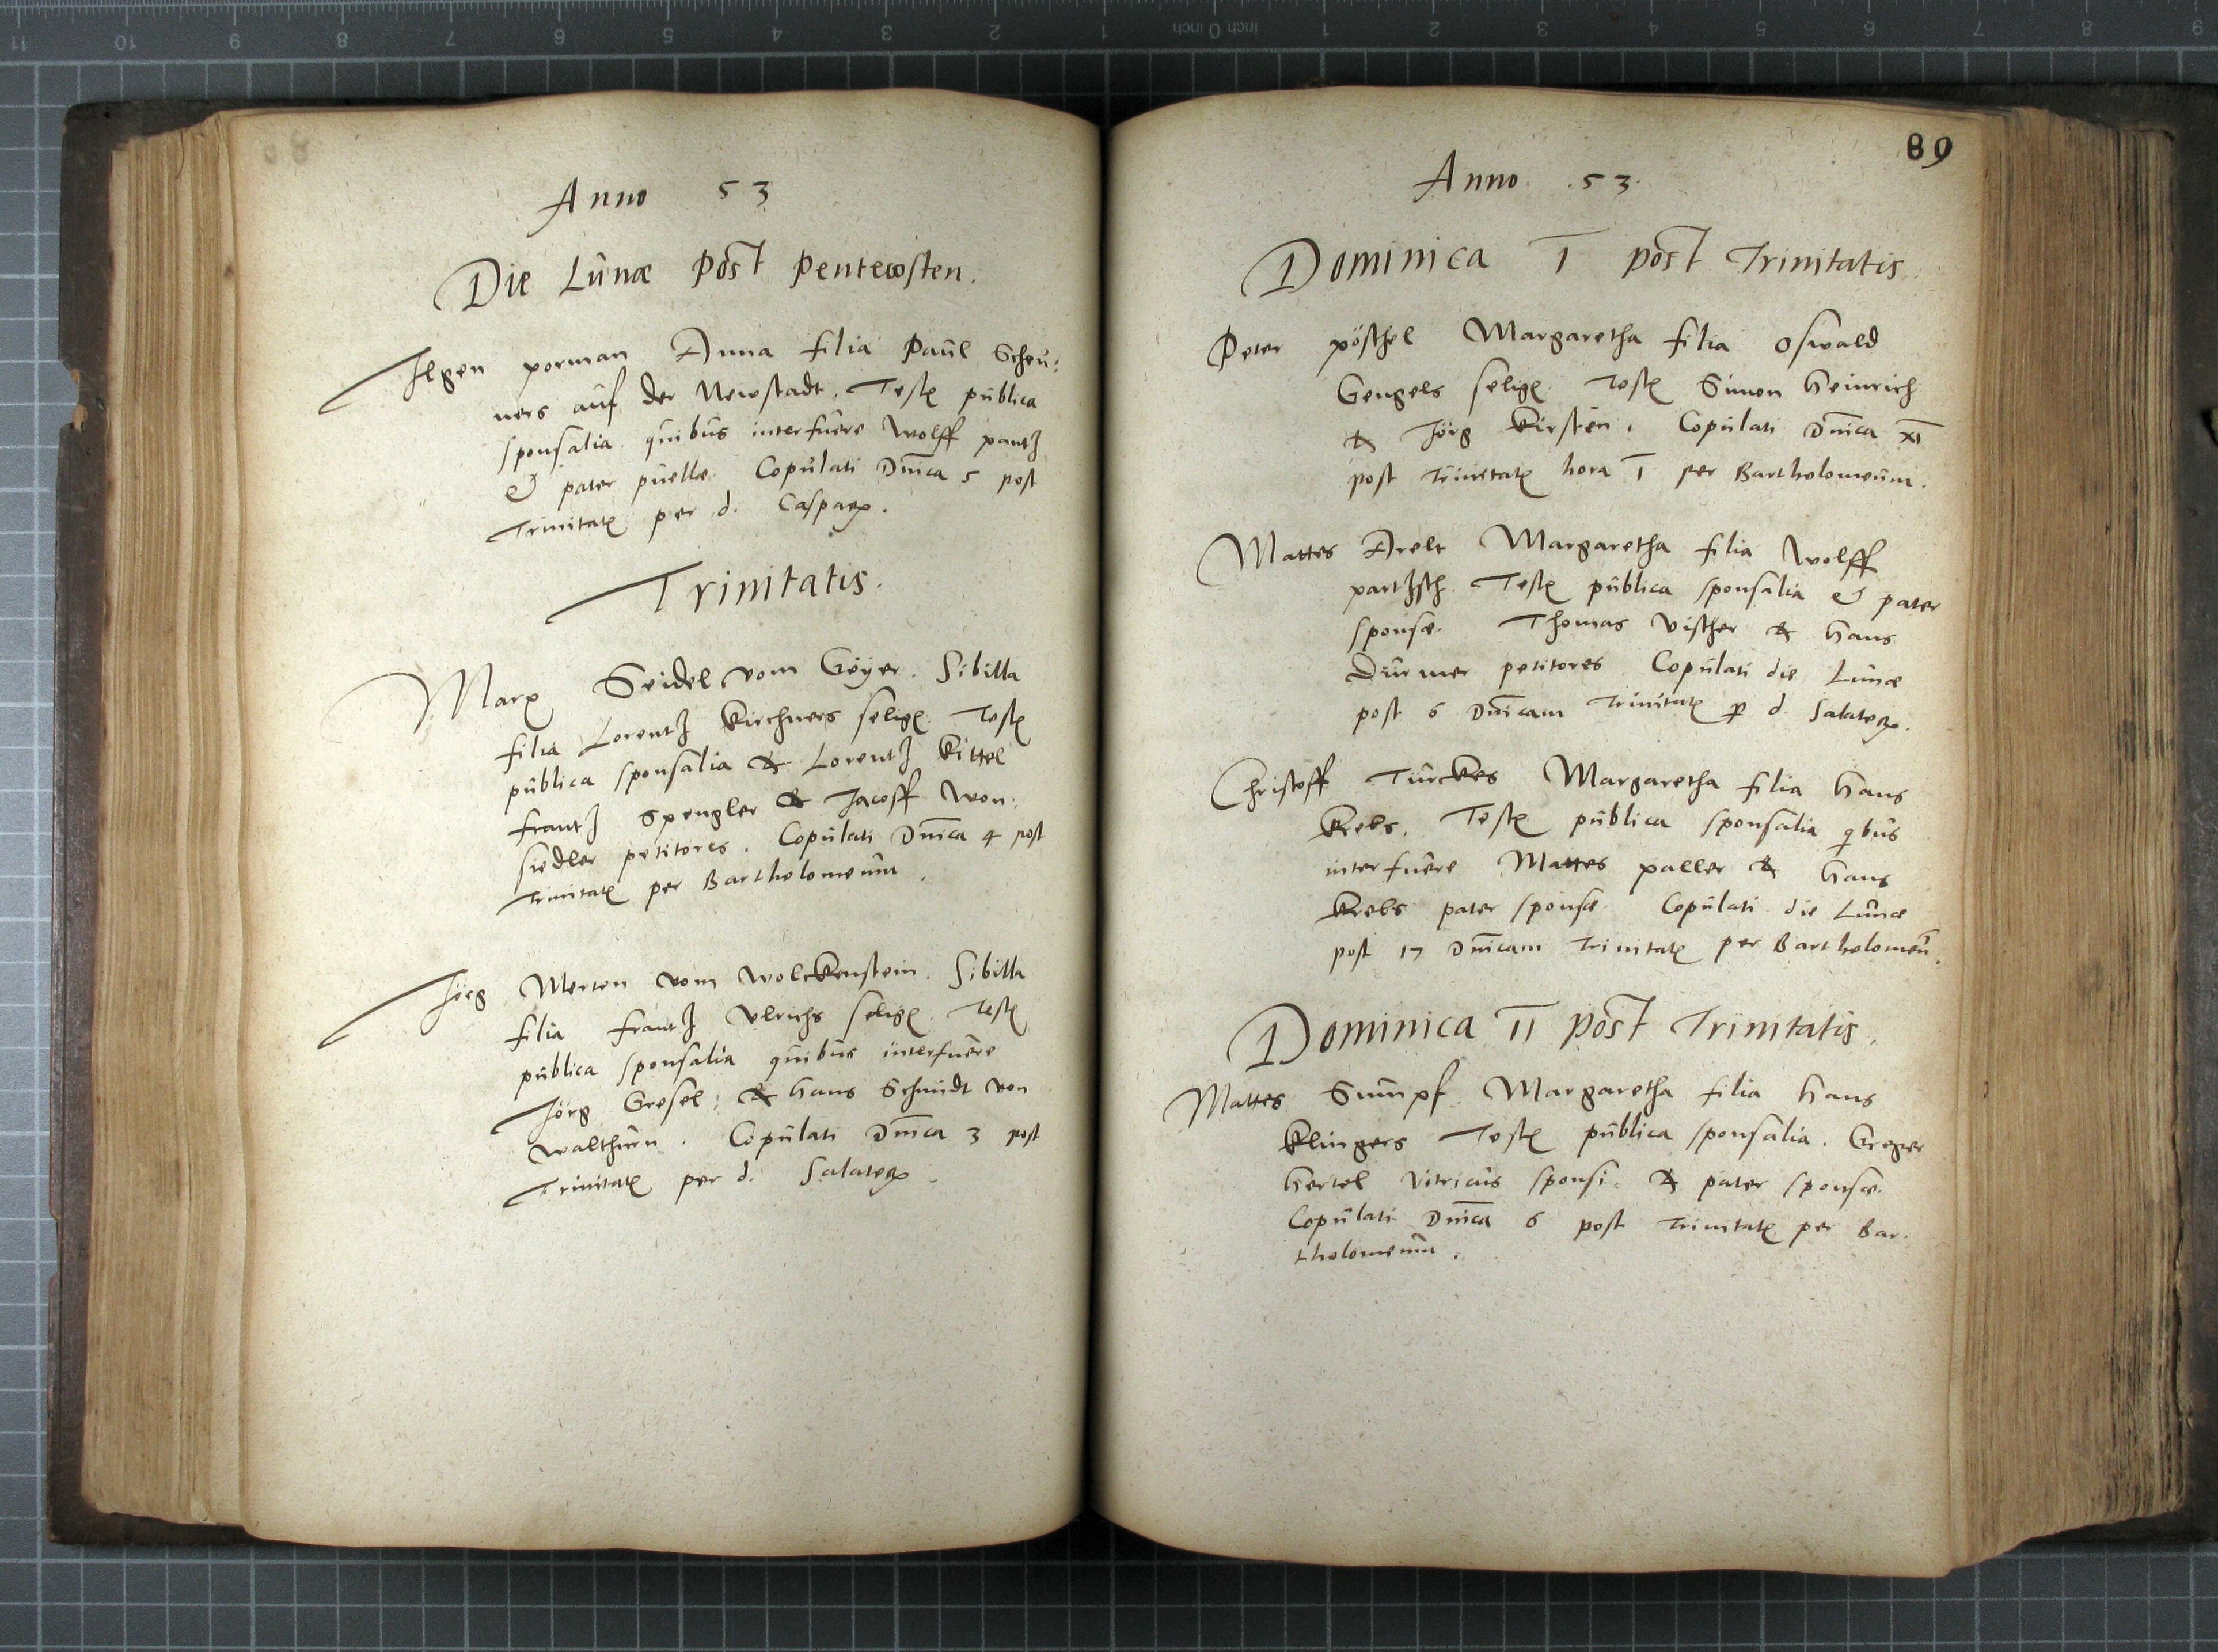 Anno 53
Die Lunæ post Pentecosten.
Ilgen porman Anna filia Paul Scheu:
ners auf der Newstadt. Testes publica
sponsalia quibus interfuere Wolff pantz
& pater puellæ. Copulati Dnica 5 post
Trinitatis per d. Casparem.
Trinitatis.
Marx Seidel vom Geyer. Sibilla
filia Lorentz Kirchners seligen. Testes
publica sponsalia & Lorentz Kittel
frantz Spengler & Jacoff Won:
siedler petitores. Copulati Dnica 4 post
Trinitatis per Bartholomeum.
Jörg Merten vom Wolckenstein. Sibilla
filia frantz Ulrichs seligen. Testes
publica sponsalia quibus interfuere
Jörg Gresel: & Hans Schmidt von
Walthurn. Copulati Dnica 3 post
Trinitatis per d. Salaterem.
89
Anno .53.
Dominica I post Trinitatis.
Peter pöschel Margaretha filia Oswald
Gengels seligen. Testes Simon Heinrich
& Jörg Kirsten. Copulati Dnica XI
post Trinitatis hora I per Bartholomeum.
Mattes Arelt Margaretha filia Wolff
partzsch. Testes publica sponsalia & pater
sponsæ. Thomas Vischer & Hans
Durner petitores. Copulati die Lunæ
post 6 Dnicam Trinitatis per d. Salaterem.
Christoff Türckes Margaretha filia Hans
Krebs. Testes publica sponsalia qbus
interfuere Mattes paller & Hans
Krebs pater sponsæ. Copulati die Lunæ
post 17 Dnicam Trinitatis per Bartholomeu.
Dominica II post Trinitatis.
Mattes Sumpf. Margaretha filia Hans
Klingers Testes publica sponsalia. Greger
Hertel vitricus sponsi. & pater sponsæ.
Copulati Dnica 6 post Trinitatis per Bar.
tholomeum.